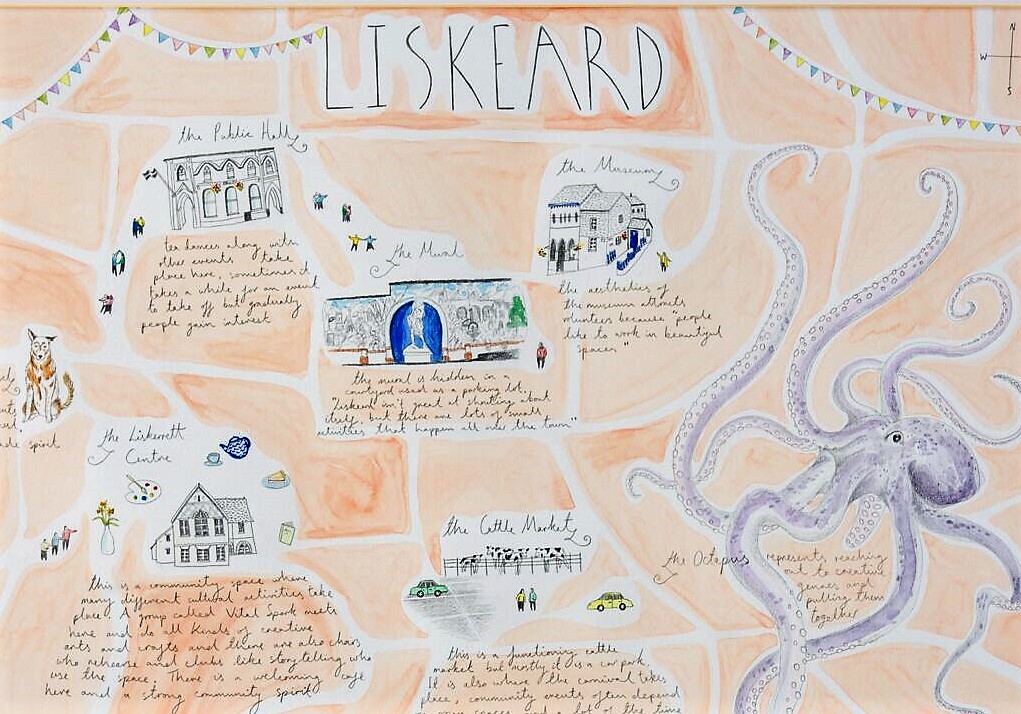 LISKEARD
N
W
S
the Public Hall
tea dances along with
other events take
place here, sometimes it
takes a while for an event
to take off but gradually
people gain interest
the Mural
the mural is hidden in a
courtyard used as a parking lot.
"Liskeard isn't great at shouting about
itself, but there are lots of small
activities that happen all over the town"
the Museum
the aesthetics of
the museum attracts
volunteers because "people
like to work in beautiful
spaces"
spirit
the Liskerrett
Centre
this is a community space where
many different cultural activities take
place. A group called Vital Spark meets
here and do all kinds of creative
arts and crafts and there are also choirs
who rehearse and clubs like storytelling who
use the space. There is a welcoming café
here and a strong community spirit
the Cattle Market
this is a functioning cattle
market but mostly it is a car park.
It is also where the carnival takes
place, community events often depend
on open spaces and a lot of the time
the Octopus represents reaching
out to creative
genres and
pulling them
together